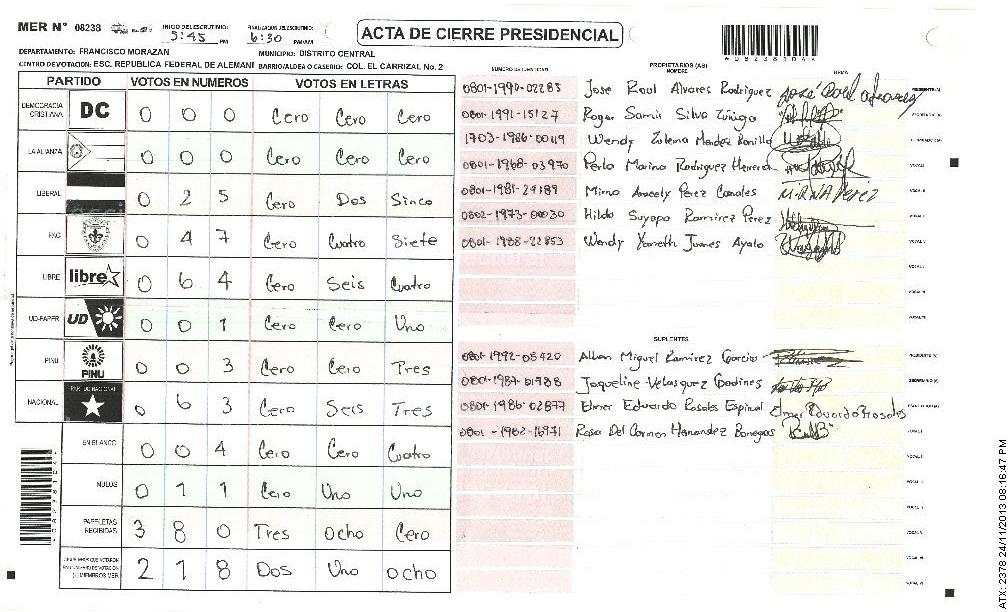 MER N° 08238
INICIO DEL ESCRUTINIO 5:45 PM
FINALIZACION DEL ESCRUTINIO 6:30 PM/AM
ACTA DE CIERRE PRESIDENCIAL
DEPARTAMENTO: FRANCISCO MORAZAN
MUNICIPIO: DISTRITO CENTRAL
CENTRO DE VOTACION: ESC. REPUBLICA FEDERAL DE ALEMANI
BARRIO/ALDEA O CASERIO: COL. EL CARRIZAL No. 2
PARTIDO VOTOS EN NUMEROS VOTOS EN LETRAS
DEMOCRACIA CRISTIANA DC 0 0 0 Cero Cero Cero
LA ALIANZA 0 0 0 Cero Cero Cero
LIBERAL 0 2 5 Cero Dos Sinco
PAC 0 4 7 Cero Cuatro Siete
LIBRE libre 0 6 4 Cero Seis Cuatro
UD-FAPER UD 0 0 1 Cero Cero Uno
PINU PINU 0 0 3 Cero Cero Tres
NACIONAL PARTIDO NACIONAL 0 6 3 Cero Seis Tres
EN BLANCO 0 0 4 Cero Cero Cuatro
NULOS 0 1 1 Cero Uno Uno
PAPELETAS RECIBIDAS 3 8 0 Tres Ocho Cero
2 1 8 Dos Uno Ocho
NUMERO DE IDENTIDAD PROPIETARIOS (AS) NOMBRE FIRMA
0801-1990-02285 Jose Raul Alvares Rodriguez
0801-1991-15127 Roger Samir Silva Zúñiga
1703-1986-00119 Wendy Zulema Mendez Bonilla
0801-1968-03970 Perla Marina Rodriguez Herrera
0801-1981-29189 Mirna Aracely Perez Canales MIRNA Perez
0802-1973-00030 Hilda Suyapa Ramirez Perez
0801-1988-22853 Wendy Yaneth Juanes Ayala
SUPLENTES
0801-1992-05420 Allan Miguel Ramirez Garcia
0801-1987-01788 Jaqueline Velasquez Godines
0801-1986-02877 Elmer Eduardo Rosales Espinal Elmer Eduardo Rosales
0801-1982-16971 Rosa Del Carmen Hernandez Banegas
ATX: 2378 24/11/2013 08:16:47 PM